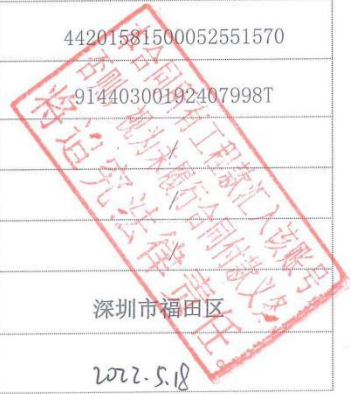 44201581500052551570
91440300192407998T
/
/
/
深圳市福田区
2022.5.18
本合同所有工程款汇入该账号
否则视为未履行合同付款义务
将追究法律责任。